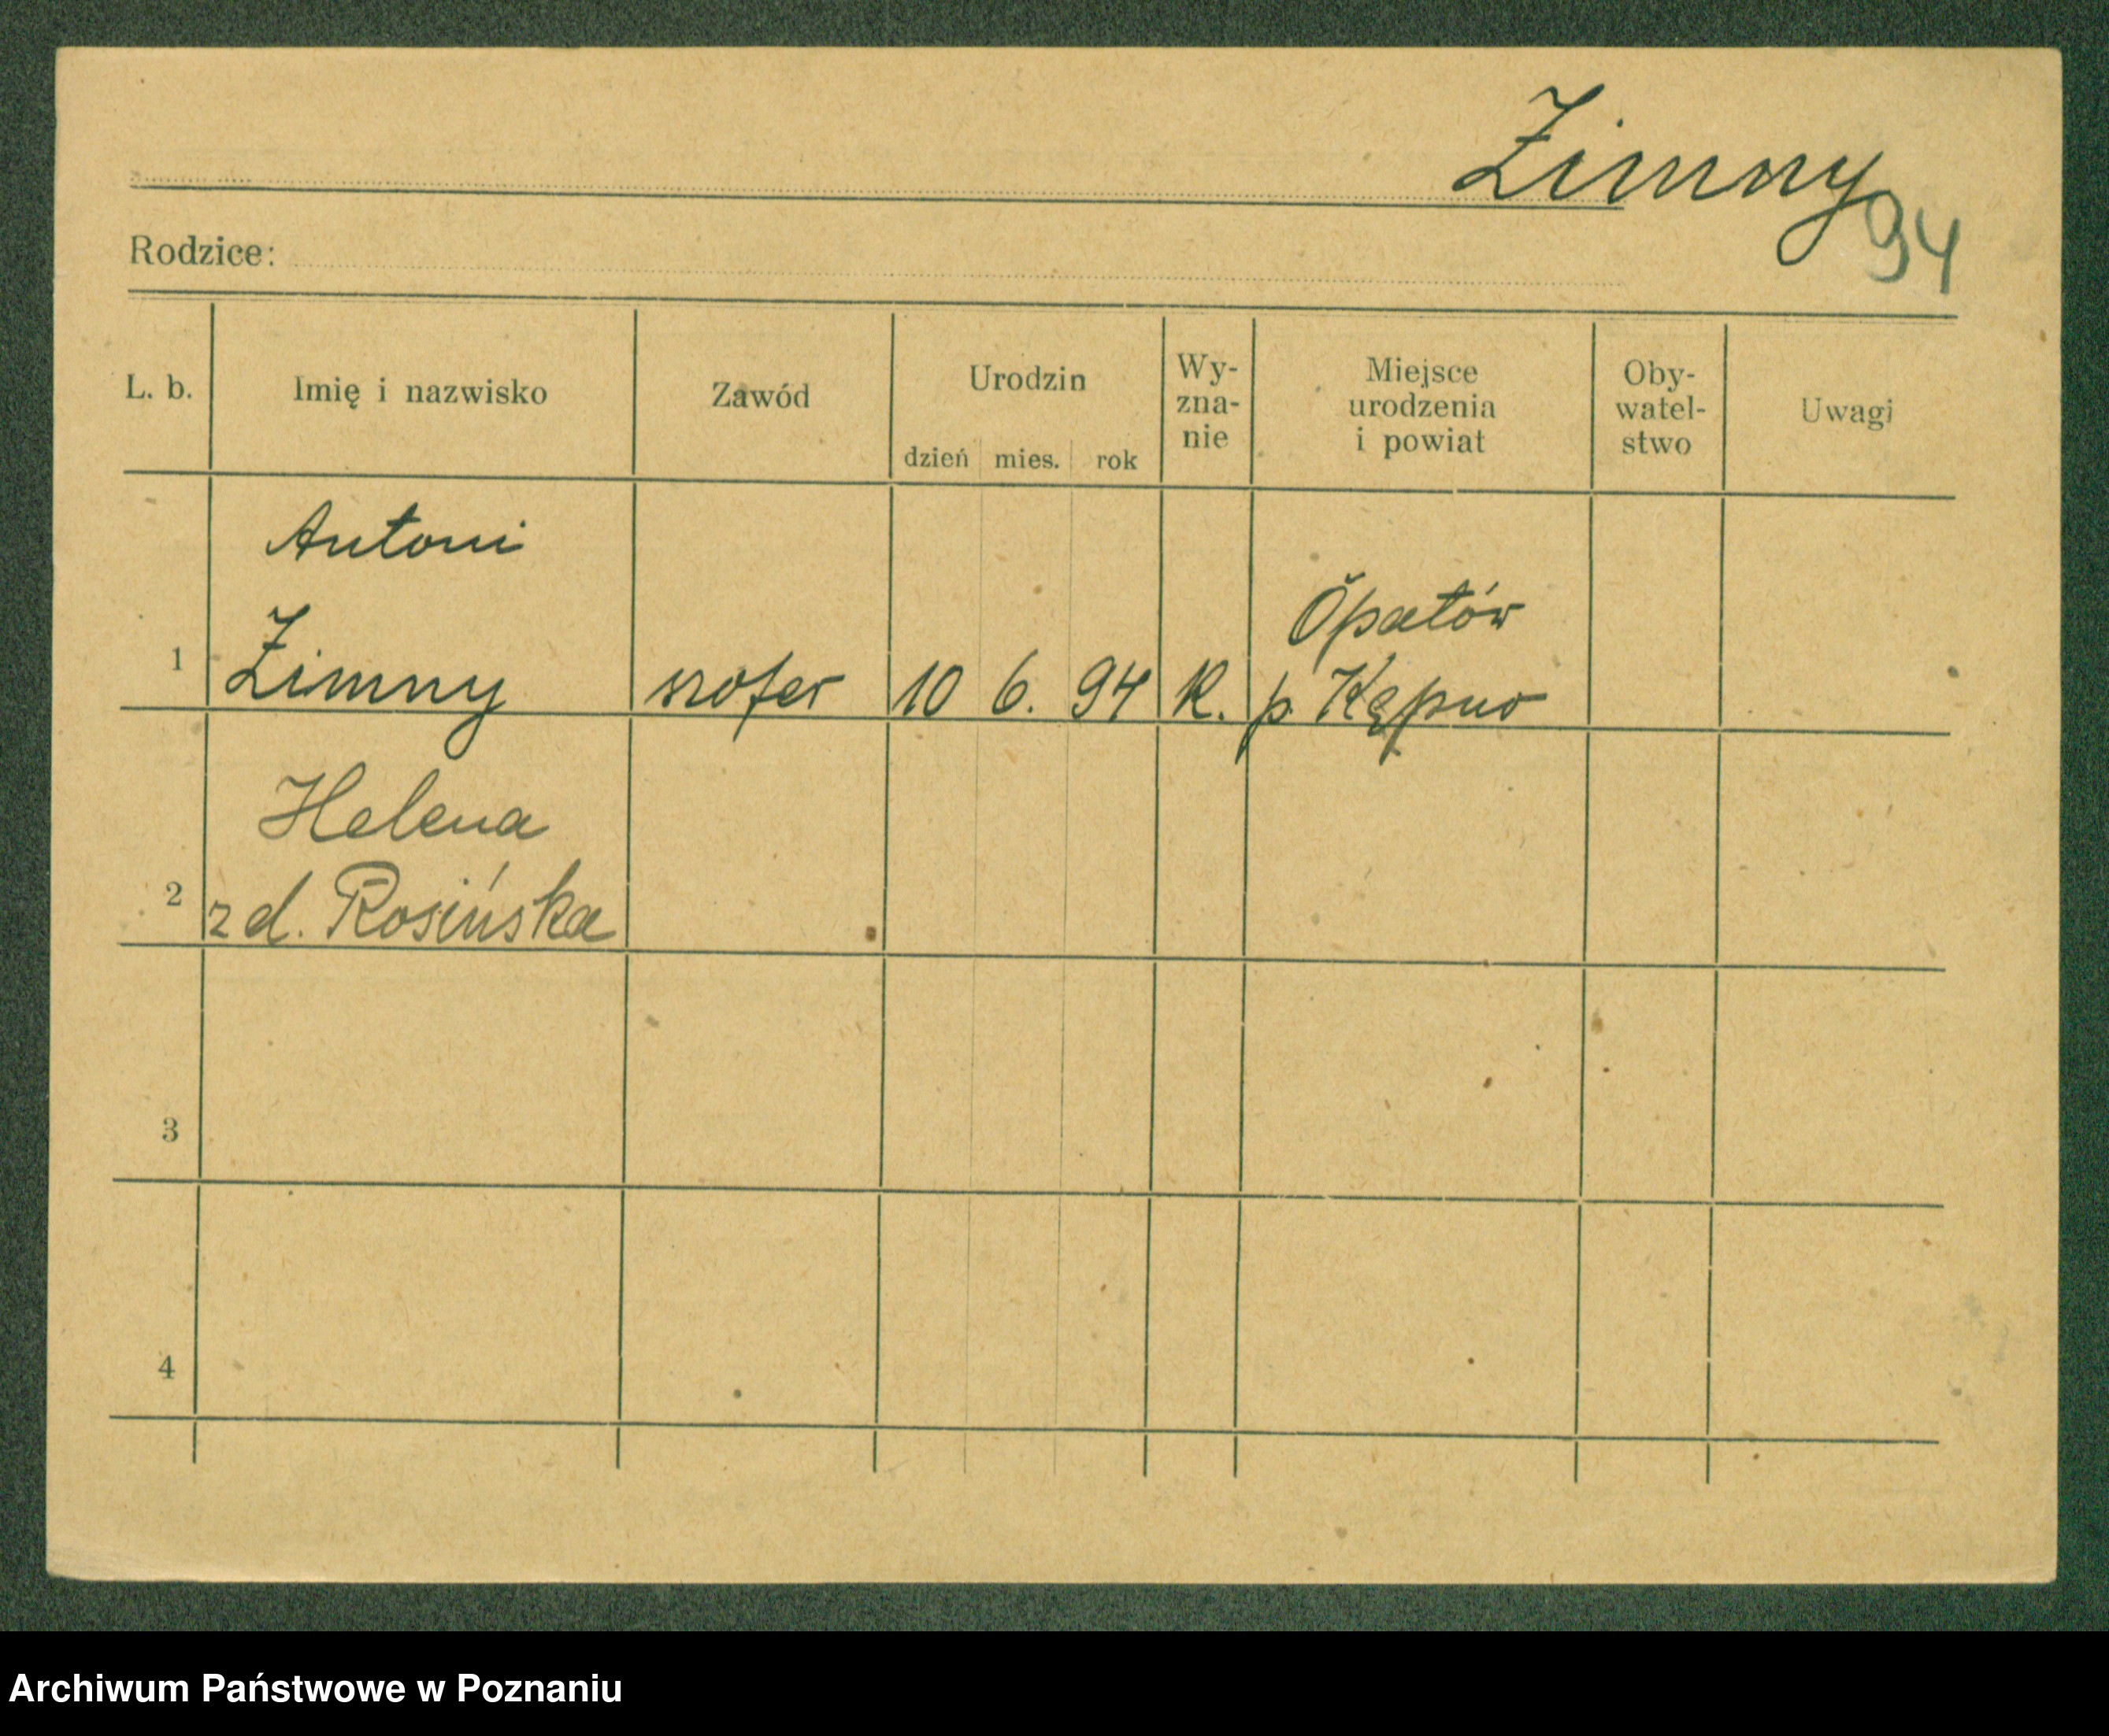 Zimny
94
Rodzice:
L. b. Imię i nazwisko Zawód Urodzin dzień mies. rok Wy-zna-nie Miejsce urodzenia i powiat Oby-watel-stwo Uwagi
Antoni
Opatów
1 Zimny szofer 10 6. 94 K. p. Kępno
Helena
2 z d. Rosińska
3
4
Archiwum Państwowe w Poznaniu